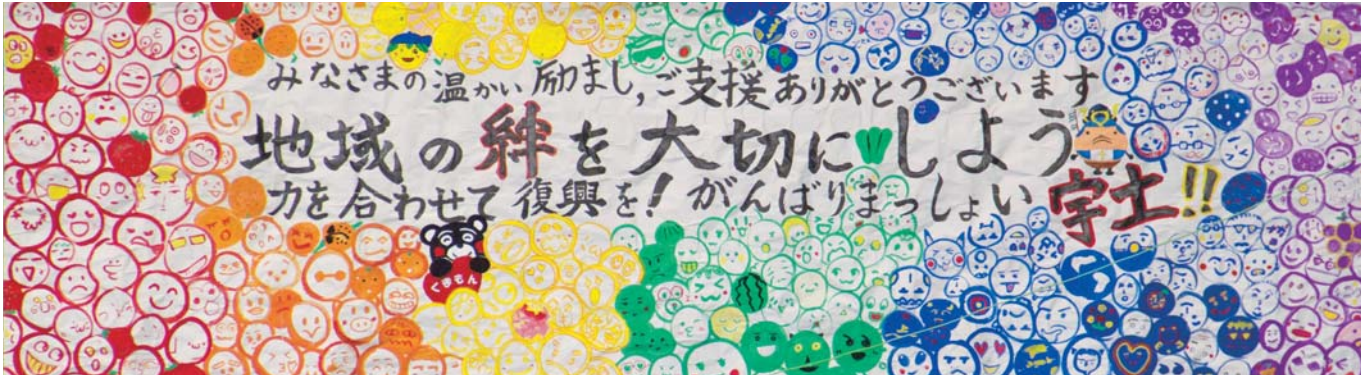 みなさまの温かい励まし,ご支援ありがとうございます
地域の絆を大切にしよう
力を合わせて復興を!がんばりまっしょい宇土!!
くまモン